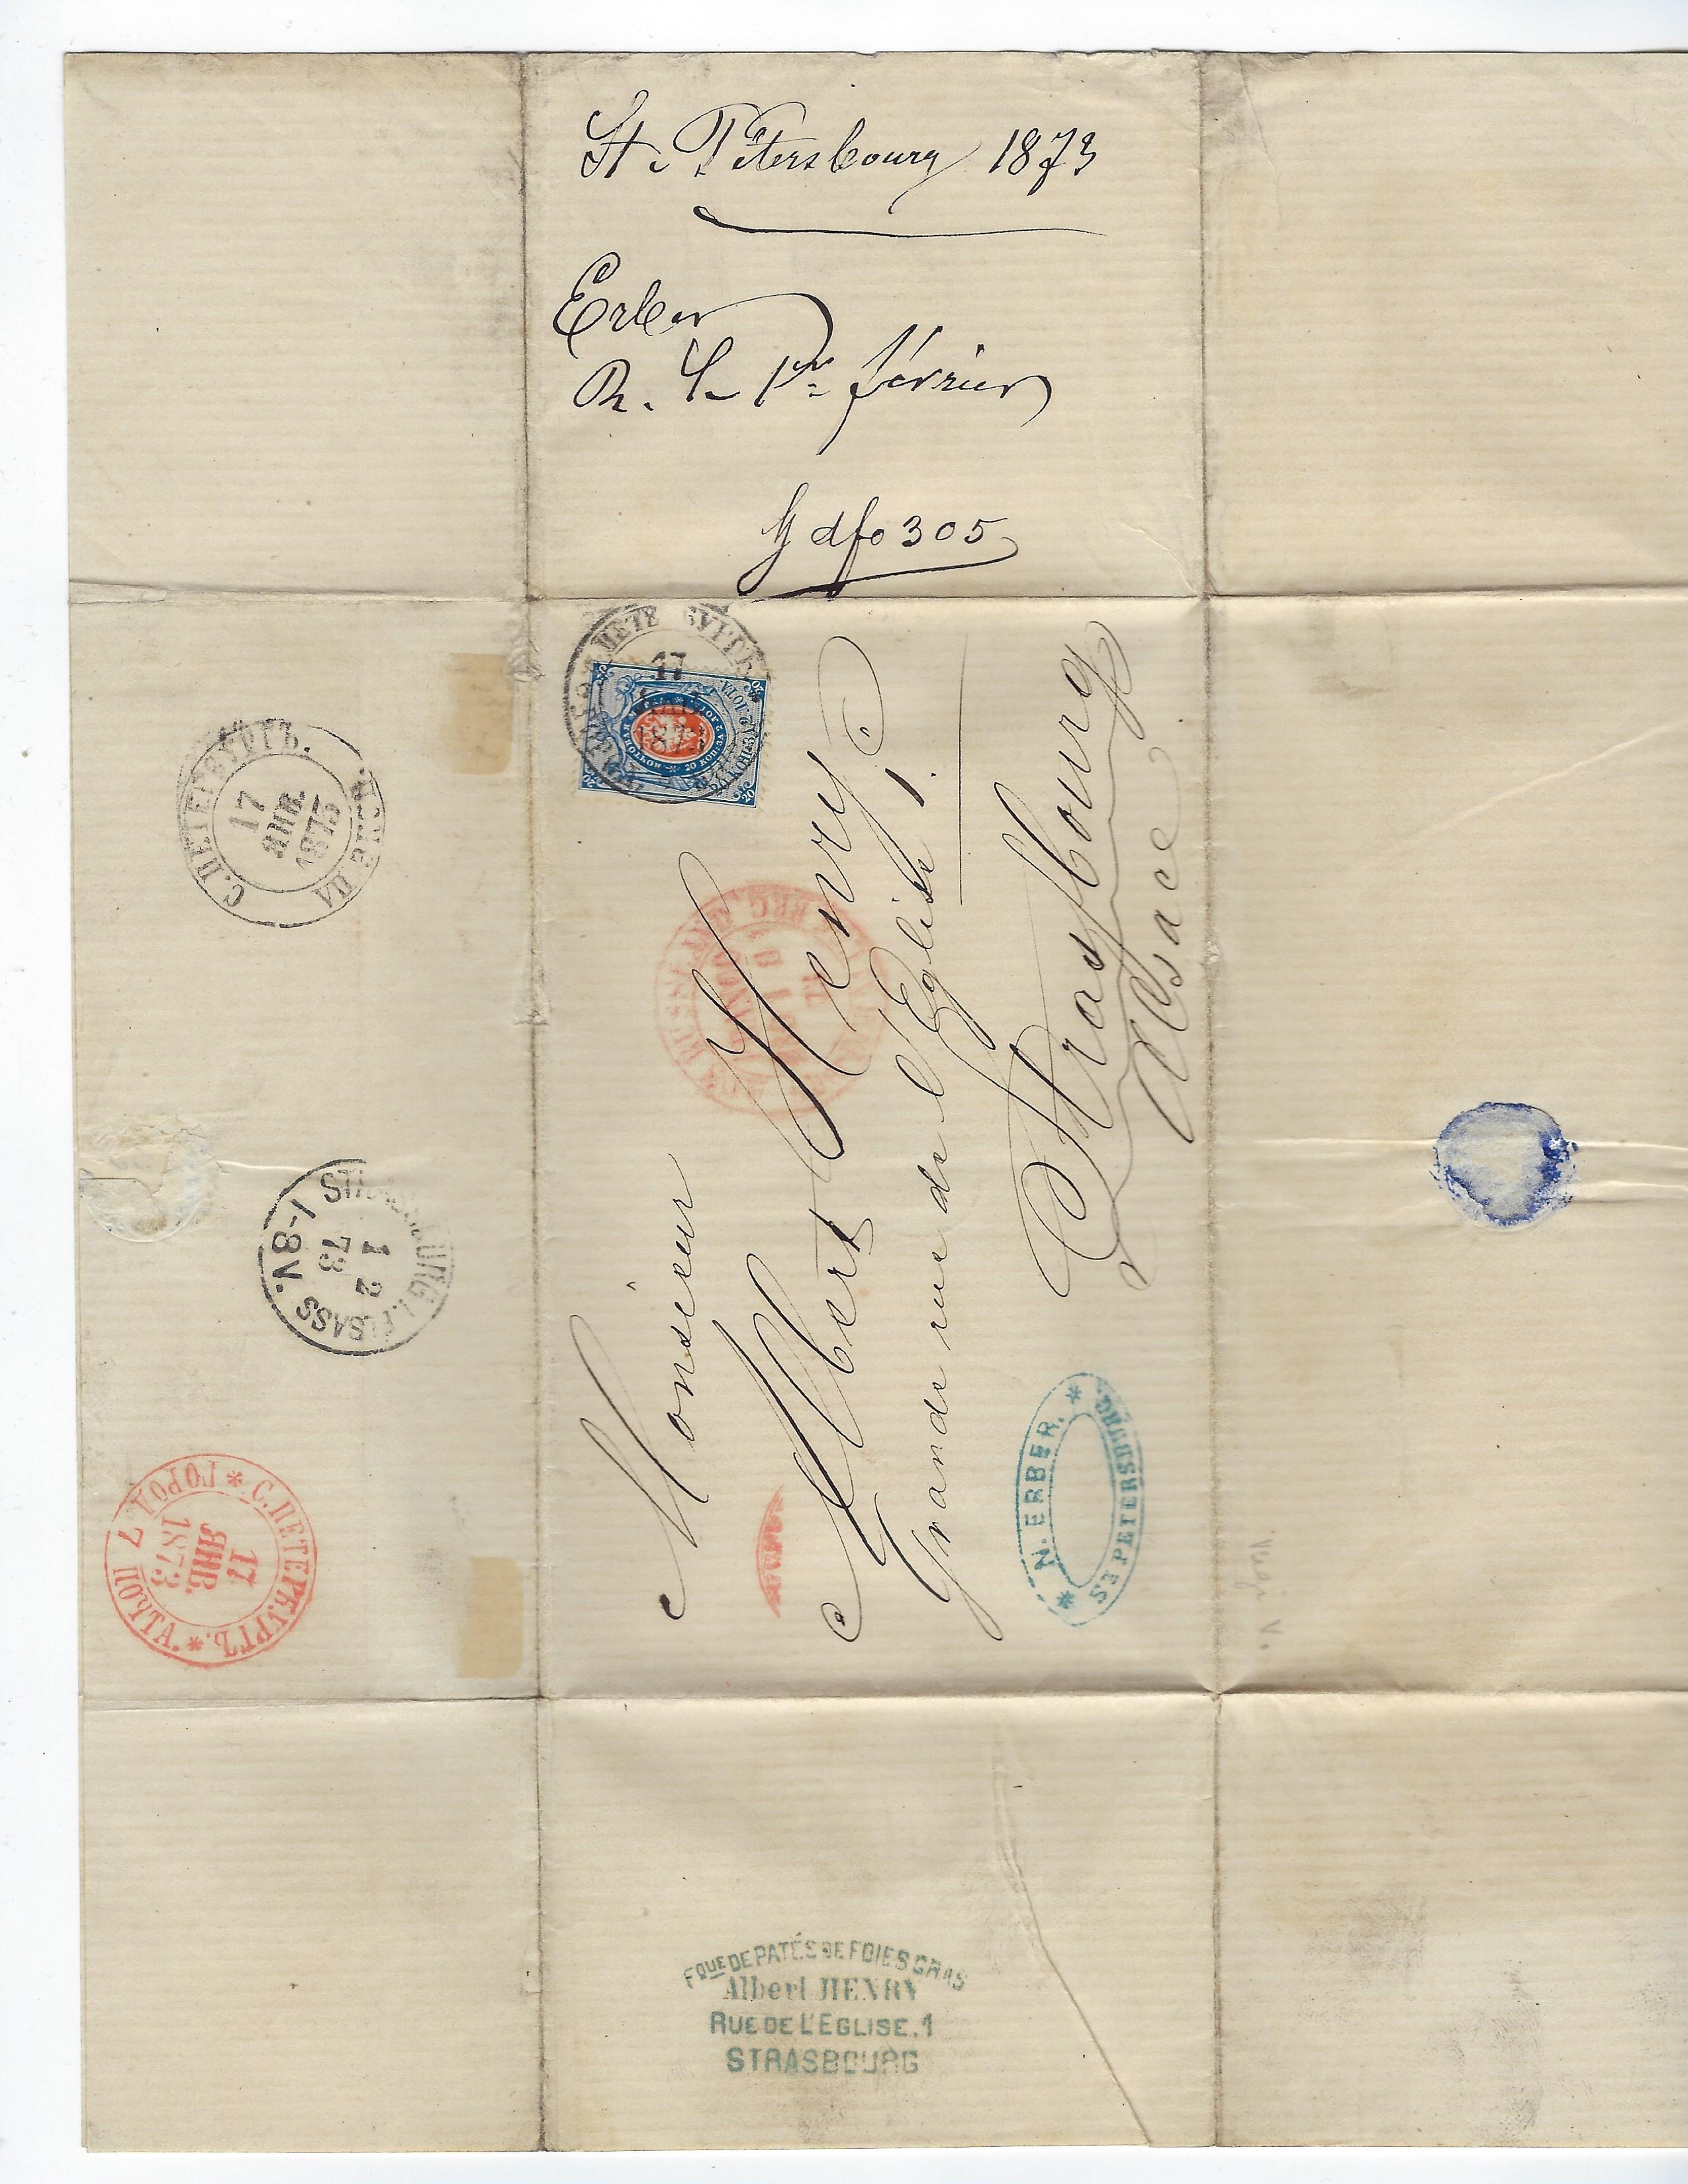 St. Pétersbourg 1873
Erber
R. le 1er février
gdfo 305
17
1873
20
20 КОП. ЗА ЛОТЪ
С. ПЕТЕРБУРГЪ.
17
ЯНВ.
1873
Monsieur
Albert Henry
Grande rue de l'Eglise 1.
Strasbourg
Alsace
STRASSBURG I. ELSASS
1 2
73
1-8V.
С. ПЕТЕРБУРГЪ.
ГОРОД. ПОЧТА
7
17
ЯНВ.
1873
N. ERBER.
ST PETERSBURG
Fque DE PATÉS DE FOIES GRAS
Albert HENRY
RUE DE L'EGLISE. 1
STRASBOURG